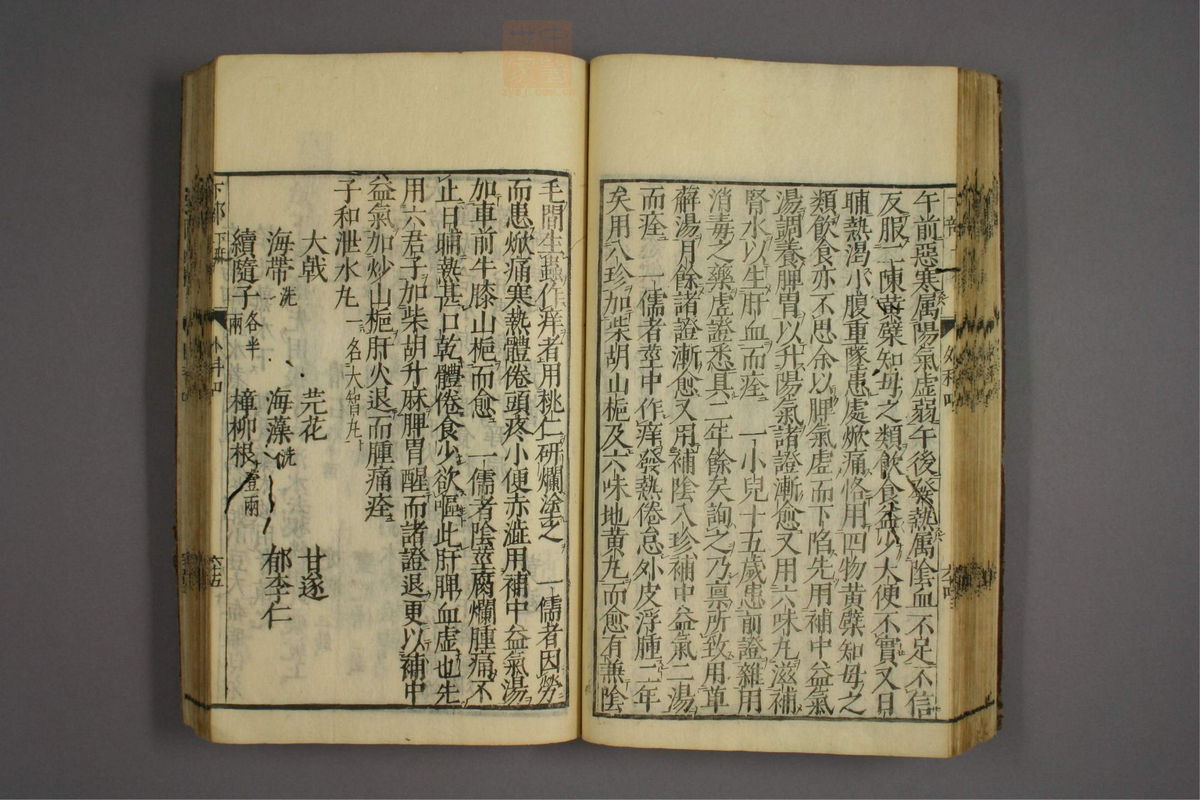 午前惡寒属陽氣虛弱午後發熱属陰血不足不信
反服二陳黃蘗知母之類飲食益少大便不實又日
晡熱渴小腹重墜患處焮痛恪用四物黃蘗知母之
類飲食亦不思余以脾氣虛而下陷先用補中益氣
湯調養脾胃以升陽氣諸證漸愈又用六味丸滋補
腎水以生肝血而痊 一小兒十五歲患前證雜用
消毒之藥虛證悉具二年餘矣詢之乃禀所致用萆
薢湯月餘諸證漸愈又用補陰八珍補中益氣二湯
而痊 一儒者莖中作痒發熱倦怠外皮浮腫二年
矣用八珍加柴胡山梔及六味地黃丸而愈有兼陰
毛間生蟲作痒者用桃仁研爛塗之 一儒者因勞
而患焮痛寒熱體倦頭疼小便赤澁用補中益氣湯
加車前牛膝山梔而愈 一儒者陰莖腐爛腫痛不
止日晡熱甚口乾體倦食少欲嘔此肝脾血虛也先
用六君子加柴胡升麻脾胃醒而諸證退更以補中
益氣加炒山梔肝火退而腫痛痊
子和泄水丸 一名大智丸
大戟 芫花 甘遂
海帶洗 海藻洗 郁李仁
續隨子各半兩 樟柳根壹兩
下部 下疳 外科 六十五